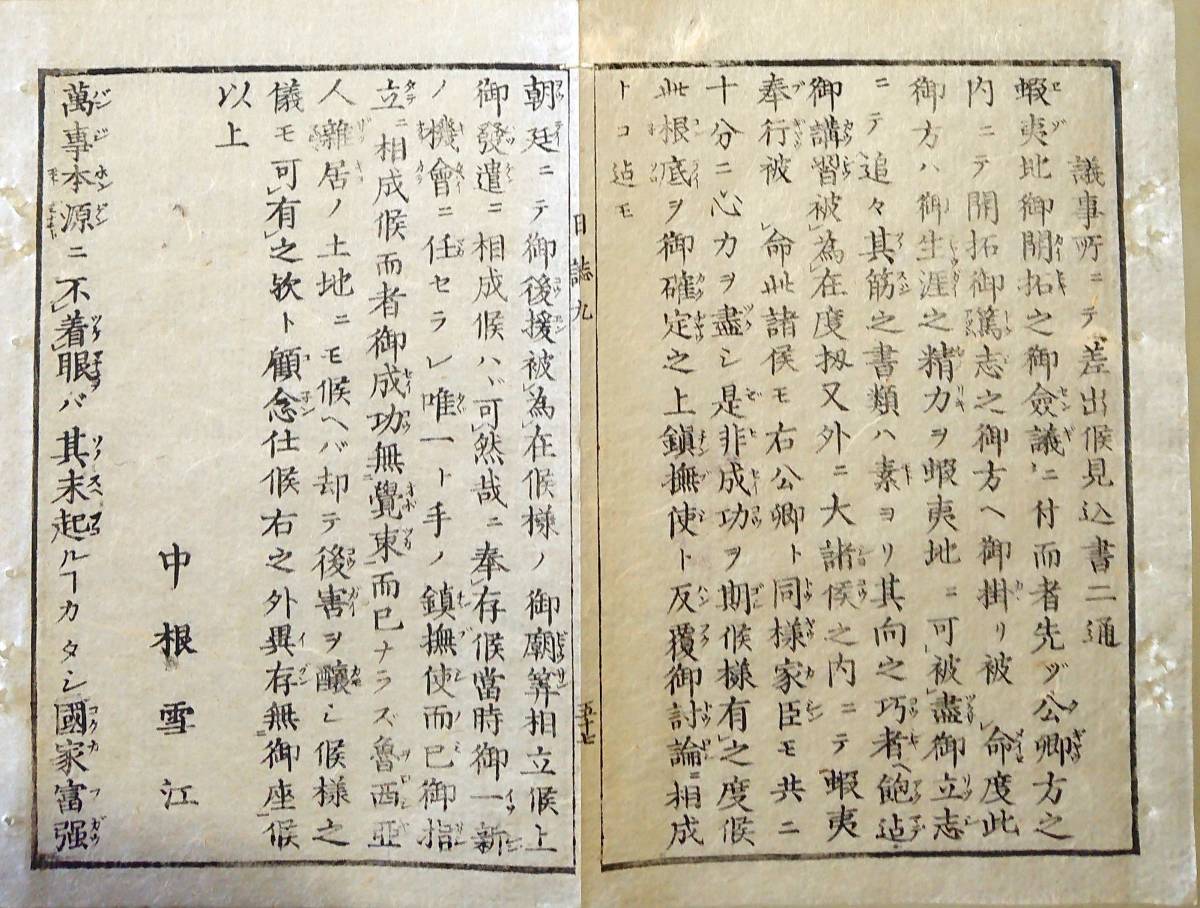 議事所ニテ差出候見込書二通
蝦夷地御開拓之御僉議ニ付而者先ヅ公卿方之
内ニテ開拓御篤志之御方ヘ御掛リ被命度此
御方ハ御生涯之精力ヲ蝦夷地ニ可被盡御立志
ニテ追々其筋之書類ハ素ヨリ其向之巧者ヘ飽迠
御講習被為在度扨又外ニ大諸侯之内ニテ蝦夷
奉行被命此諸侯モ右公卿ト同様家臣モ共ニ
十分ニ心力ヲ盡シ是非成功ヲ期候様有之度候
此根底ヲ御確定之上鎮撫使ト反覆御討論ニ相成
トコ迠モ
日誌九
五十七
朝廷ニテ御後援被為在候様ノ御廟筭相立候上
御發遣ニ相成候ハヾ可然哉ニ奉存候當時御一新
ノ機會ニ任セラレ唯一ト手ノ鎮撫使而已御指
立ニ相成候而者御成功無覺束而已ナラズ魯西亞
人雜居ノ土地ニモ候ヘバ却テ後害ヲ釀シ候様之
儀モ可有之欤ト顧念仕候右之外異存無御座候
以上
中根雪江
萬事本源ニ不着眼バ其末起ルヿカタシ國家富强